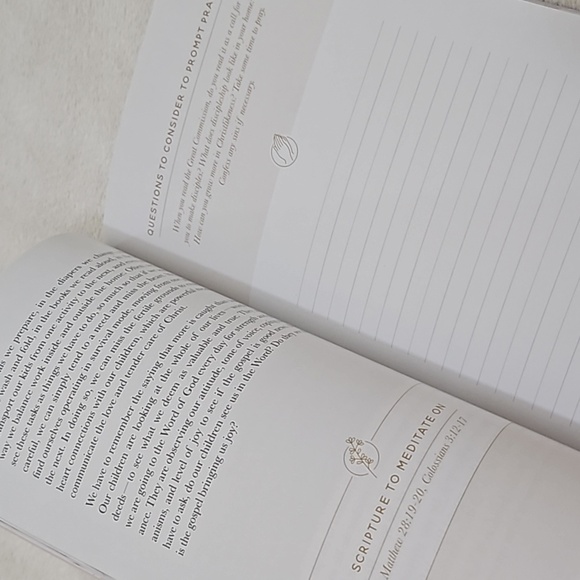 as we prepare, in the diapers we
wash and fold, in the books we read aloud,
our kids from one activity to the next, and
way we balance work inside and outside the home.
see these tasks as things we have to do, so much so that if
careful we can simply tend to a need and miss the
find ourselves operating in survival mode: moving from
the next. In doing so, we can miss the fertile grounds
heart connections with our children, which are powerful
communicate the love and tender care of Christ.
We have to remember the saying that more is caught
Our children are looking at the whole of our lives—
deeds—to see what we deem as valuable and true.
we are going to the Word of God every day for strength
ance. They are observing our attitude, tone of voice,
anisms, and level of joy to see if the gospel is good
have to ask, do our children see us in the Word? Do
is the gospel bringing us joy?
SCRIPTURE TO MEDITATE ON
Matthew 28:19-20, Colossians 3:12-17
QUESTIONS TO CONSIDER TO PROMPT PRA
When you read the Great Commission, do you read it as a call for
you to make disciples? What does discipleship look like in your home?
How can you grow more in Christlikeness? Take some time to pray.
Confess any sins if necessary.